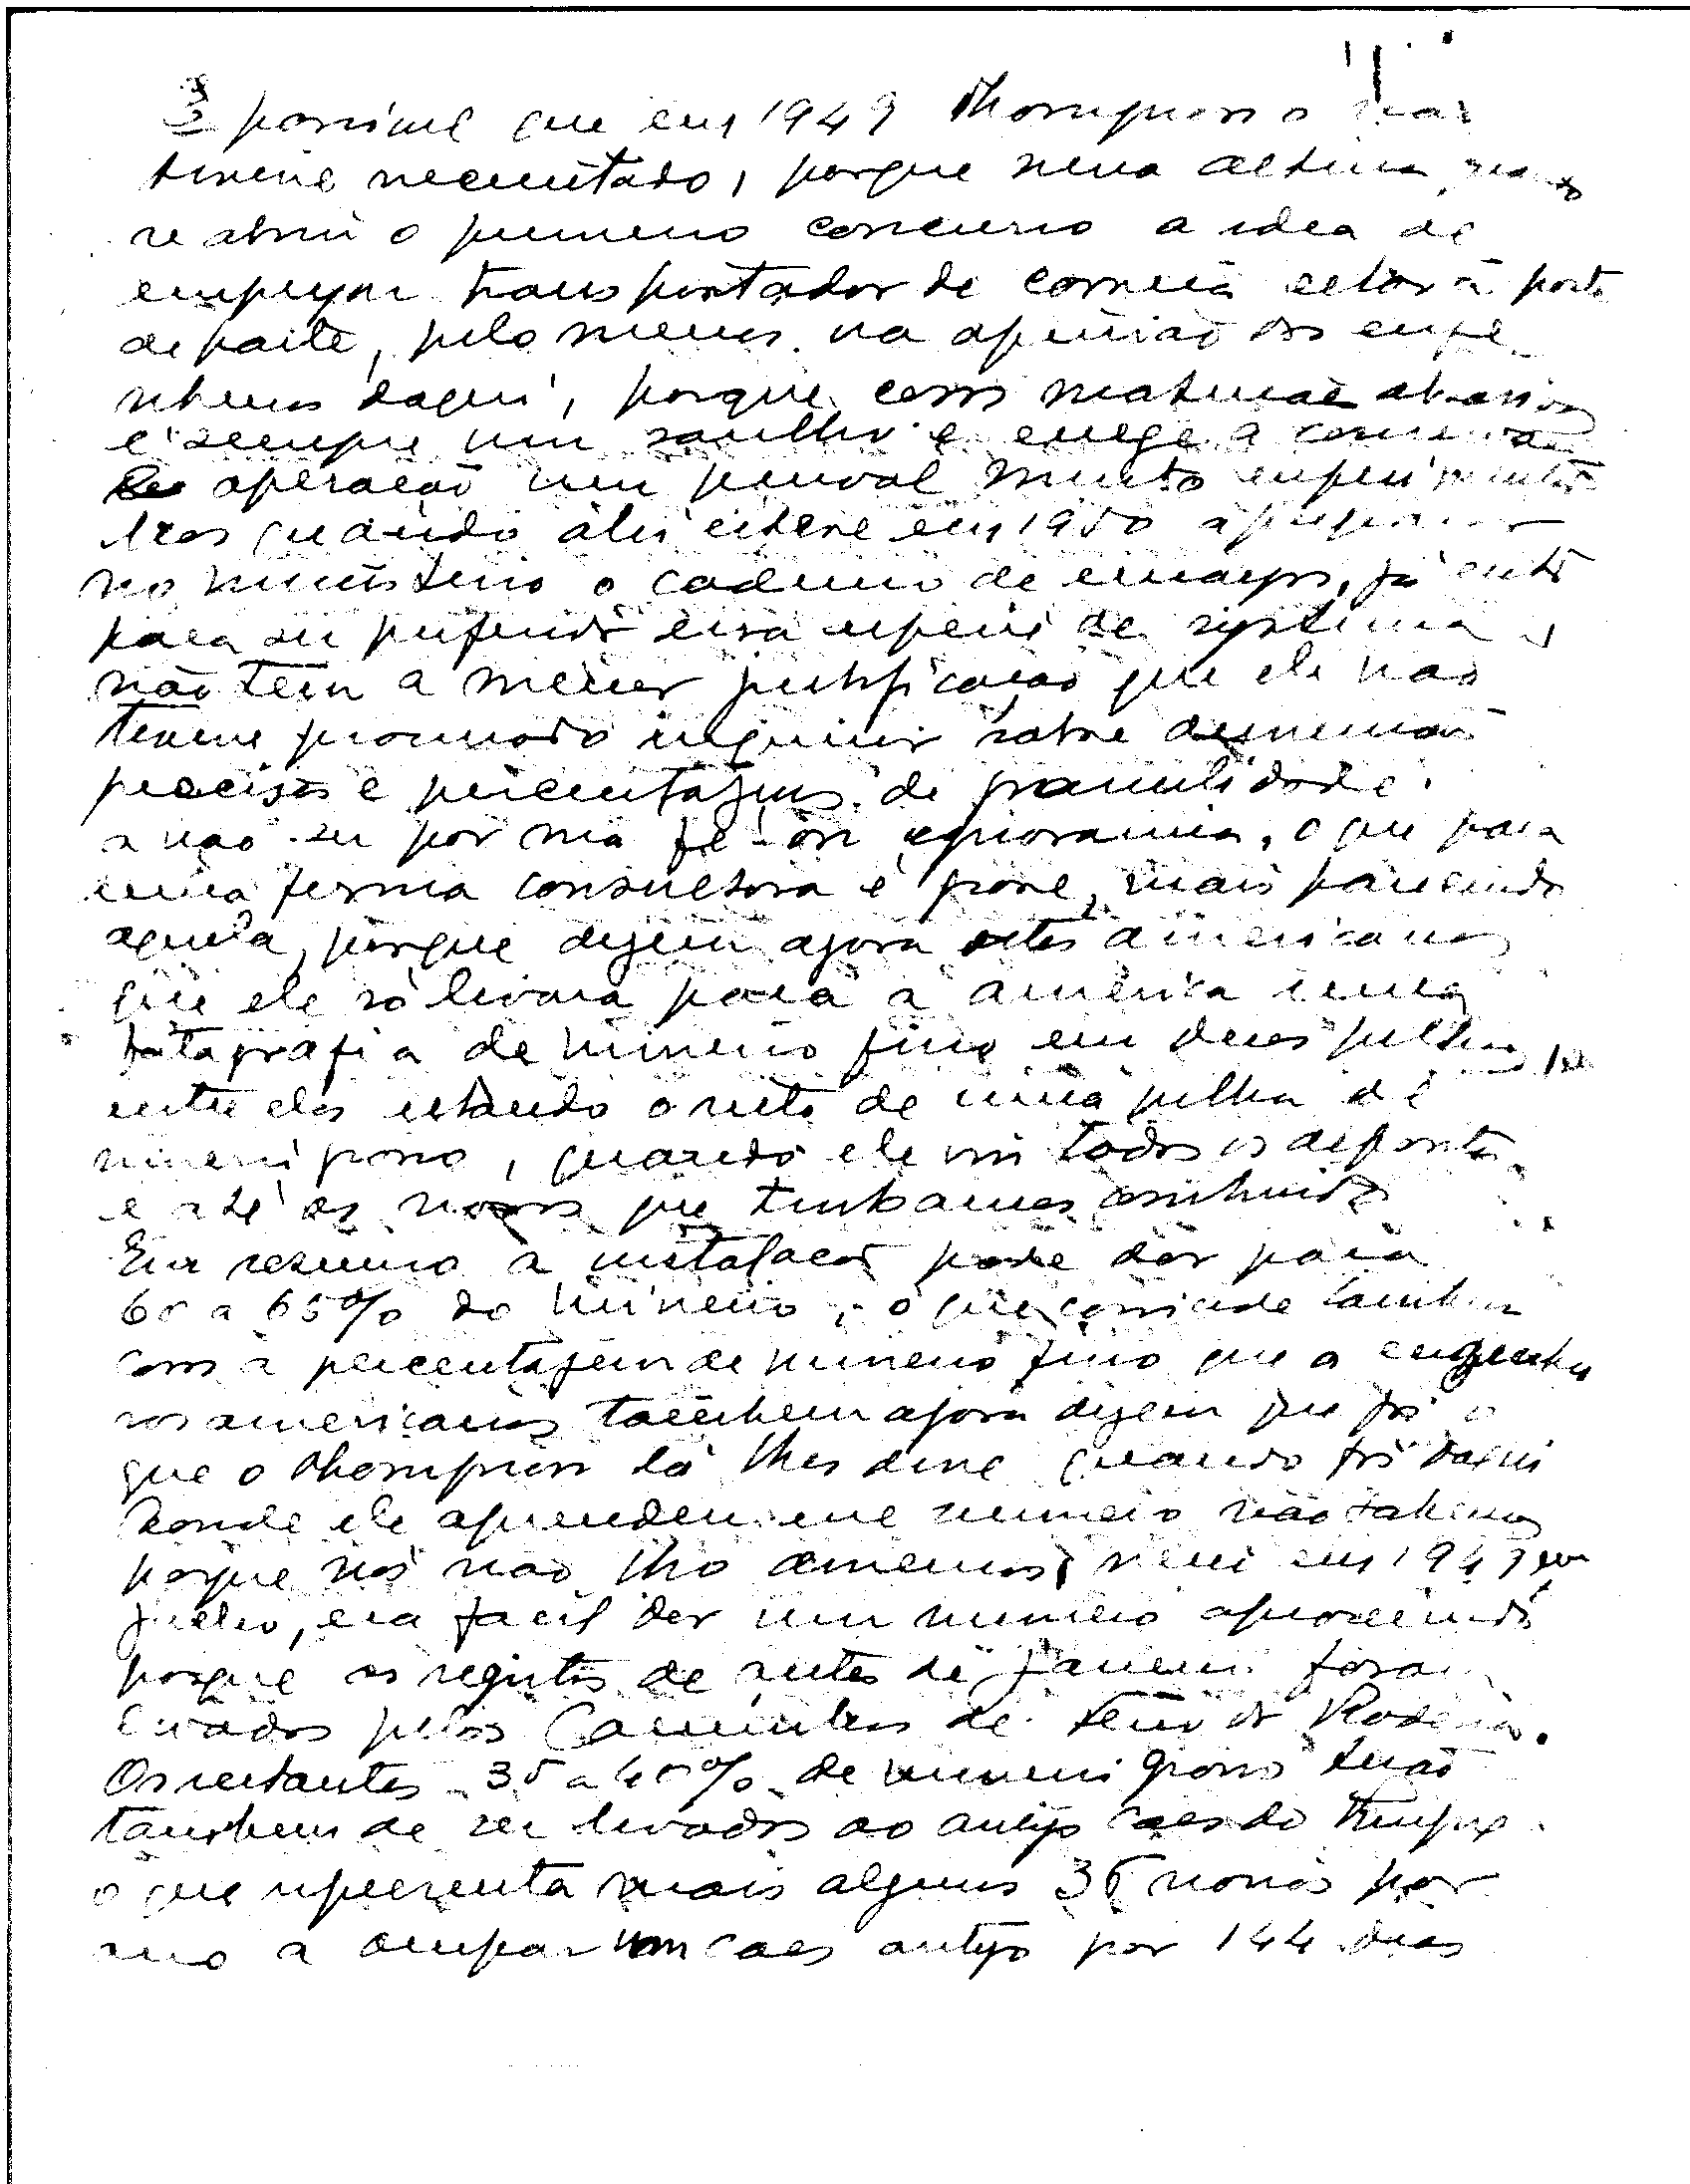 É possivel que em 1949 Thompson o não
tivesse necessitado, porque nessa altura, quando
se abriu o primeiro concurso a idea de
empregar transportador de correia estava posta
de parte, pelo menos na opinião dos enge
nheiros daqui, porque com material abrasivo
é sempre um sarilho e exige a
operação um pessoal muito experimentado
Mas quando ali esteve em 1950 a preparar
no Ministerio o caderno de encargos, já então
para ser preferido essa especie de systema
não tem a menor justificação que ele não
tivesse procurado inquirir sobre dimensões
precisas e percentagens de granulidade
a não ser por má fé ou ignorancia, o que para
uma firma consultora é grave, mais parecendo
aquela, porque dizem agora estes americanos
que ele só levara para a America uma
fotografia de minerio fino em duas pilhas,
entre elas estando o resto de uma pilha de
minerio grosso, quando ele viu todos os depositos
e até os novos que tinhamos construido
Em resumo a instalação pode dar para
60 a 65% do minerio, o que coincide tambem
com a percentagem de minerio fino que os engenhei
ros americanos tambem agora dizem que foi o
que o Thompson lá lhes disse quando foi daqui
Donde ele aprendeu esse numero não sabemos
porque nós não lho demos, nem em 1949 em
Julho, era facil dar um numero aproximado
porque os registos de antes de Janeiro foram
levados pelos Caminhos de Ferro da Rodesia.
Os restantes 35 a 40% de minerio grosso terão
tambem de ser levados ao antigo caes do
o que representa mais alguns 36 navios por
ano a ocupar um caes antigo por 144 dias